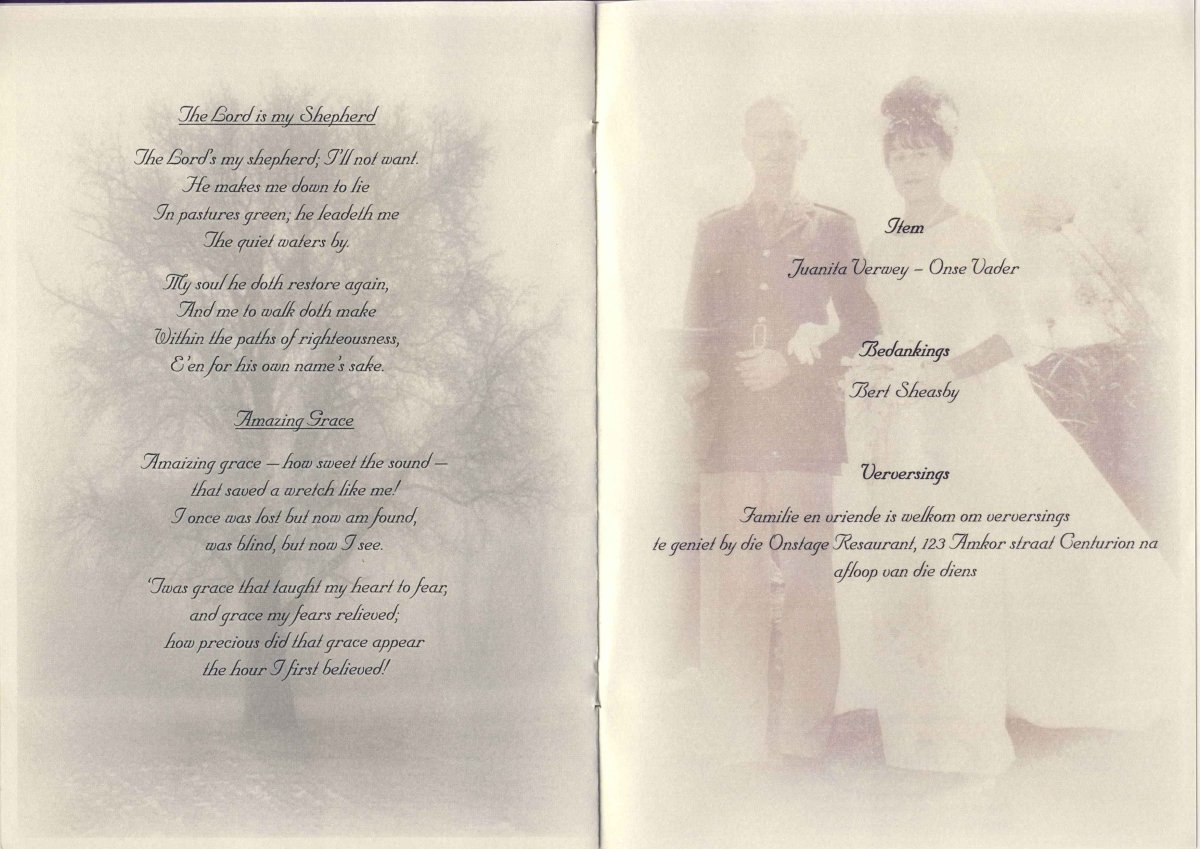 The Lord is my Shepherd
The Lord's my shepherd; I'll not want.
He makes me down to lie
In pastures green; he leadeth me
The quiet waters by.
My soul he doth restore again,
And me to walk doth make
Within the paths of righteousness,
E'en for his own name's sake.
Amazing Grace
Amaizing grace – how sweet the sound –
that saved a wretch like me!
I once was lost but now am found,
was blind, but now I see.
'Twas grace that taught my heart to fear,
and grace my fears relieved;
how precious did that grace appear
the hour I first believed!
Item
Juanita Verwey – Onse Vader
Bedankings
Bert Sheasby
Verversings
Familie en vriende is welkom om verversings
te geniet by die Onstage Resaurant, 123 Amkor straat Centurion na
afloop van die diens